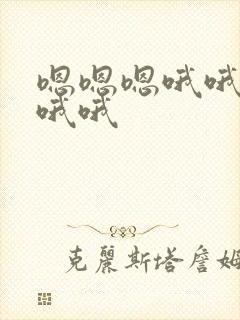 嗯嗯嗯哦哦
哦哦
克麗斯塔詹姆